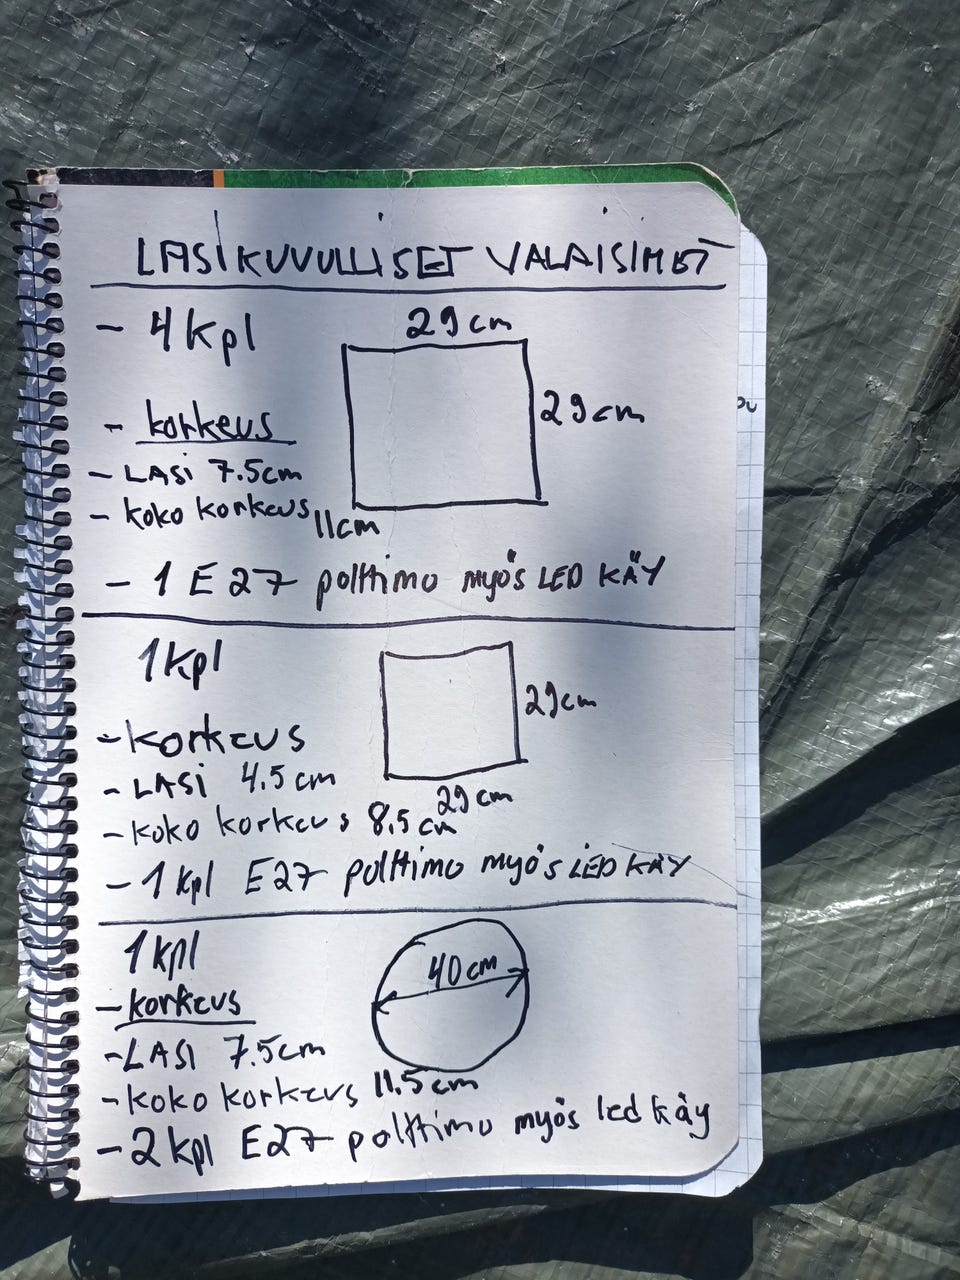 LASIKUVULLISET VALAISIMET
- 4kpl
29cm
29cm
- korkeus
- LASI 7.5cm
- koko korkeus 11cm
- 1 E27 polttimo myös LED KÄY
1kpl
29cm
- korkeus
- LASI 4.5cm
29cm
- koko korkeus 8.5cm
- 1kpl E27 polttimo myös LED KÄY
1kpl
40cm
- korkeus
- LASI 7.5cm
- koko korkeus 11.5cm
- 2 kpl E27 polttimo myös led käy